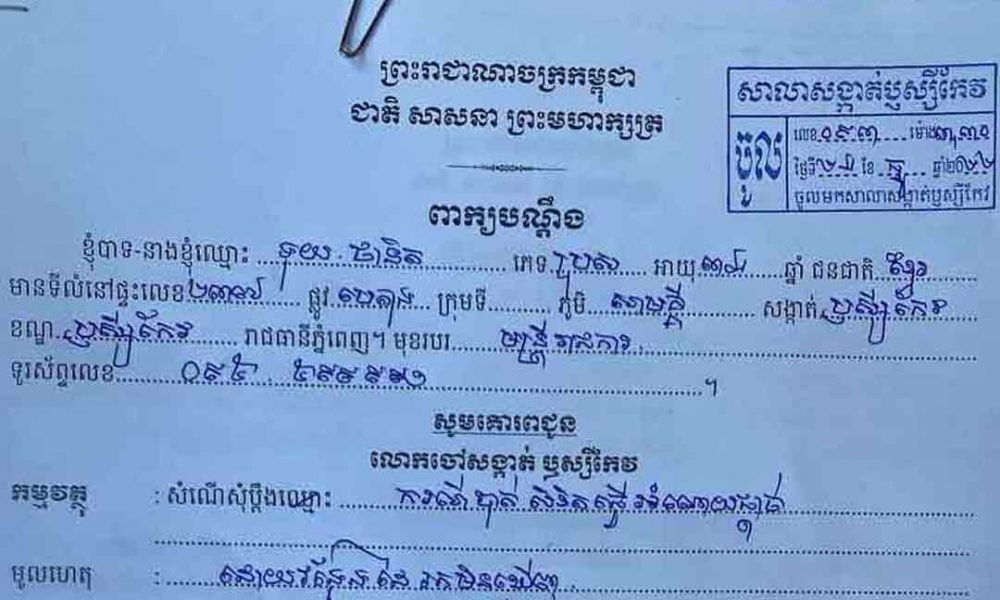 ព្រះរាជាណាចក្រកម្ពុជា
ជាតិ សាសនា ព្រះមហាក្សត្រ
សាលាសង្កាត់ឫស្សីកែវ
ចូល
លេខ ម៉ោង
ថ្ងៃទី ខែ ឆ្នាំ២០២២
ចូលមកសាលាសង្កាត់ឫស្សីកែវ
ពាក្យបណ្តឹង
ខ្ញុំបាទ-នាងខ្ញុំឈ្មោះ ទុយ ភេទ ប្រុស អាយុ ឆ្នាំ ជនជាតិ ខ្មែរ
មានទីលំនៅផ្ទះលេខ ផ្លូវ បេតុង ក្រុមទី ភូមិ សាមគ្គី សង្កាត់ ឫស្សីកែវ
ខណ្ឌ ឫស្សីកែវ រាជធានីភ្នំពេញ។ មុខរបរ មន្ត្រីរាជការ
ទូរស័ព្ទលេខ ។
សូមគោរពជូន
លោកចៅសង្កាត់ ឫស្សីកែវ
កម្មវត្ថុ : សំណើសុំប្តឹងឈ្មោះ ករណីបាត់
មូលហេតុ : ដោយ រកមិនឃើញ